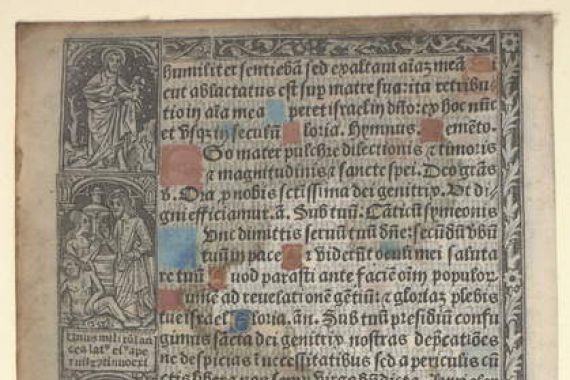 humiliter sentiebā sed exaltam aīaz meā Si
cut ablactatus est sup matre sua: ita retribu
tio in aīa mea Speret israel in dño: ex hoc nūc
et vsqz in seculū Gloria. Hymnus. Memēto.
Ego mater pulchre dilectionis ⁊ timoris
⁊ magnitudinis ⁊ sancte spei. Deo grās
v. Ora p nobis sctissima dei genitrix. Vt di
gni efficiamur. ā. Sub tuū. Cāticū symeonis
Nunc dimittis seruū tuū dñe: secūdū vbū
tuū in pace Quia viderūt oculi mei saluta
re tuū Quod parasti ante faciē oīm populor
Lumē ad reuelationē gētiū: ⁊ gloriaz plebis
tue israel Gloria. āñ. Sub tuū presidiū confu
gimus sācta dei genitrix nostras dep̄cationes
ne despicias ī necessitatibus sed a periculis cū
ctis libera nos semp virgo
Vnus mili tū lan
cea lat⁹ ei⁹ ape
ruit ⁊ ꝯtinuo exi